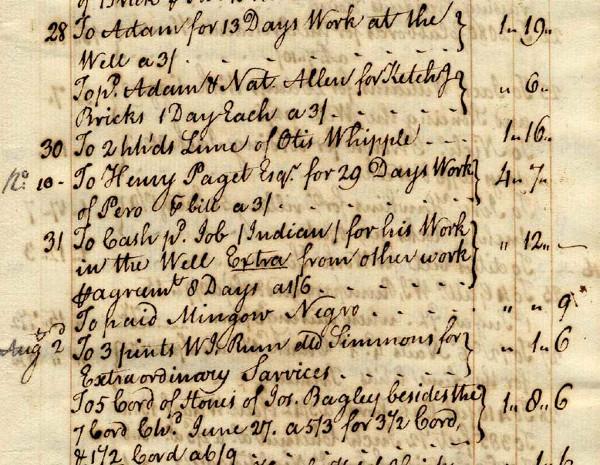 of Brick
28 To Adam for 13 Days Work at the } 1„ 19„
Well a 3/. - - - - - -
To pd. Adam & Nat. Allen for Ketchg } „ 6„
Bricks 1 Day Each a 3/. - - - -
30 To 2 hhds Lime of Otis Whipple - - - 1„ 16„
No. 10 - To Henry Paget Esqr. for 29 Days Work } 4„ 7„
of Pero bill a 3/. - - - - -
31 To Cash pd. Job /Indian/ for his Work } „ 12„ —
in the Well Extra from other work
agreemt. 8 Days a 1/6 - - - - -
To paid Mingow Negro - - - - - „ „ 9
Augt 2d To 3 pints W. I. Rum dld Simmons for } „ 1„ 6
Extraordinary Sarvices - - - - -
To 5 Cord of Stones of Jos. Bagley besides the } 1„ 8„ 6
7 Cord Chd. June 27. a 5/3 for 3 1/2 Cord,
& 1 1/2 Cord a 6/9